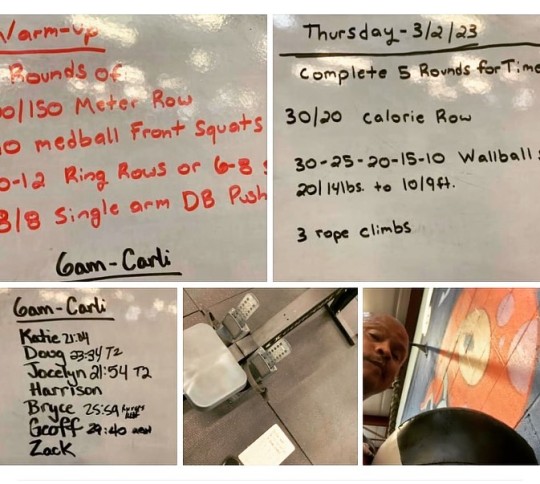 Warm-up
Rounds of
00/150 Meter Row
10 medball Front Squats
0-12 Ring Rows or 6-8 s
8/8 Single arm DB Push
6am-Carli
Thursday-3/2/23
Complete 5 Rounds for Time
30/20 Calorie Row
30-25-20-15-10 Wallball s
20/14lbs. to 10/9ft.
3 rope climbs
6am-Carli
Katie
Doug T2
Jocelyn 21:54 T2
Harrison
Bryce 25:59
Geoff
Zack